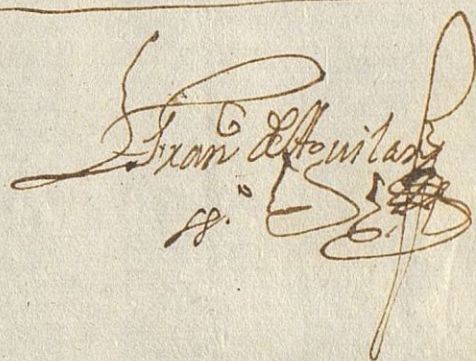 Fran^co de Aguilar
ss.º